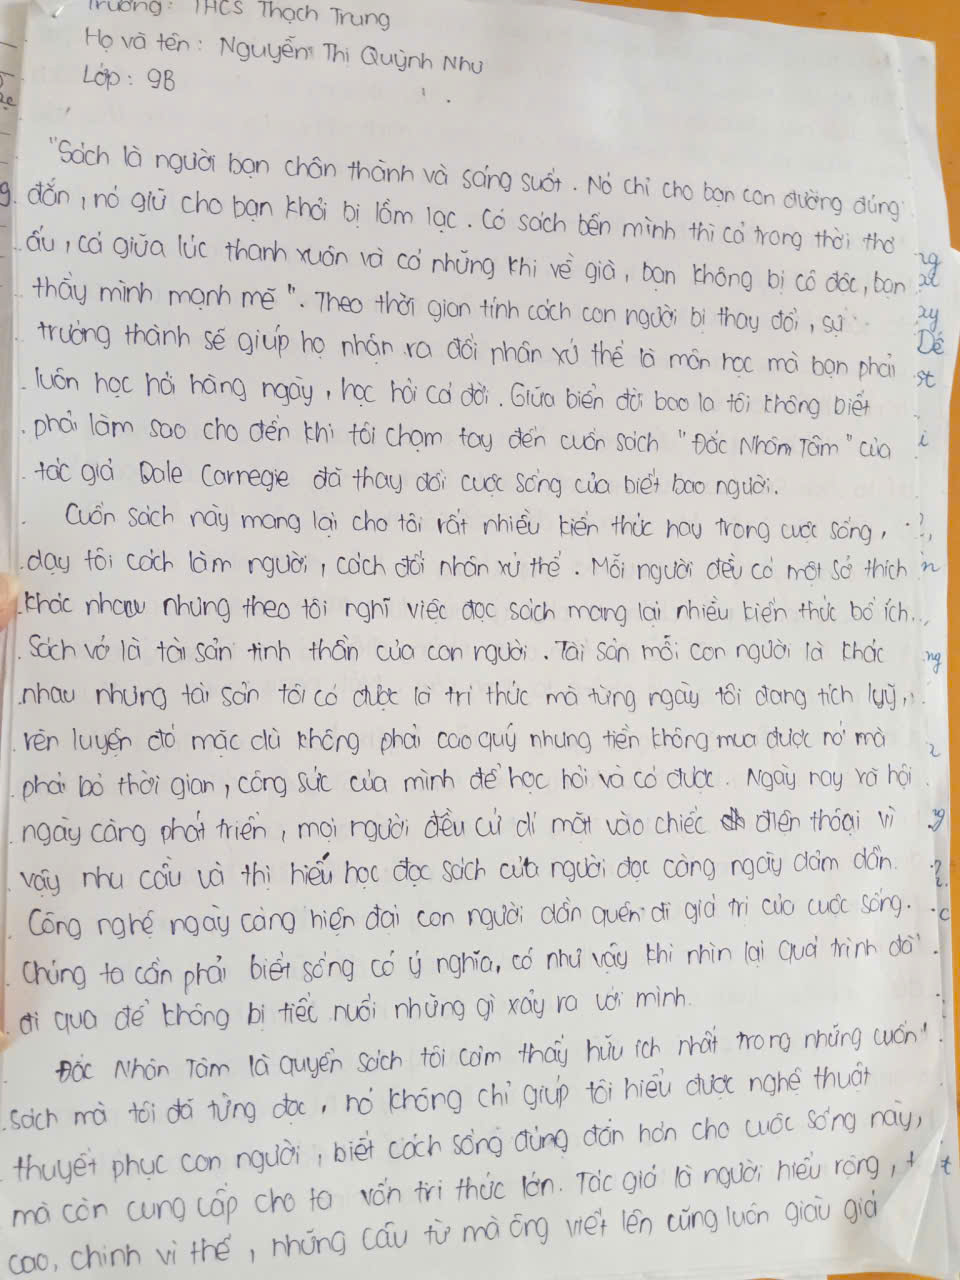 Trường: THCS Thạch Trung
Họ và tên: Nguyễn Thị Quỳnh Như
Lớp: 9B
"Sách là người bạn chân thành và sáng suốt. Nó chỉ cho bạn con đường đúng
đắn, nó giữ cho bạn khỏi bị lầm lạc. Có sách bên mình thì cả trong thời thơ
ấu, cả giữa lúc thanh xuân và cả những khi về già, bạn không bị cô độc, bạn
thấy mình mạnh mẽ". Theo thời gian tính cách con người bị thay đổi, sự
trưởng thành sẽ giúp họ nhận ra đối nhân xử thế là môn học mà bạn phải
luôn học hỏi hàng ngày, học hỏi cả đời. Giữa biển đời bao la tôi không biết
phải làm sao cho đến khi tôi chạm tay đến cuốn sách "Đắc Nhân Tâm" của
tác giả Dale Carnegie đã thay đổi cuộc sống của biết bao người.
Cuốn sách này mang lại cho tôi rất nhiều kiến thức hay trong cuộc sống,
dạy tôi cách làm người, cách đối nhân xử thế. Mỗi người đều có một sở thích
khác nhau nhưng theo tôi nghĩ việc đọc sách mang lại nhiều kiến thức bổ ích.
Sách vở là tài sản tinh thần của con người. Tài sản mỗi con người là khác
nhau nhưng tài sản tôi có được là tri thức mà từng ngày tôi đang tích lũy,
rèn luyện đó mặc dù không phải cao quý nhưng tiền không mua được nó mà
phải bỏ thời gian, công sức của mình để học hỏi và có được. Ngày nay xã hội
ngày càng phát triển, mọi người đều cứ dí mặt vào chiếc điện thoại vì
vậy nhu cầu và thị hiếu học đọc sách của người đọc càng ngày dảm dần.
Công nghệ ngày càng hiện đại con người dần quên đi giá trị của cuộc sống.
Chúng ta cần phải biết sống có ý nghĩa, có như vậy khi nhìn lại quá trình đã
đi qua để không bị tiếc nuối những gì xảy ra với mình.
Đắc Nhân Tâm là quyển sách tôi cảm thấy hữu ích nhất trong những cuốn
sách mà tôi đã từng đọc, nó không chỉ giúp tôi hiểu được nghệ thuật
thuyết phục con người, biết cách sống đúng đắn hơn cho cuộc sống này,
mà còn cung cấp cho ta vốn tri thức lớn. Tác giả là người hiểu rộng,
cao, chính vì thế, những câu từ mà ông viết lên cũng luôn giàu giá